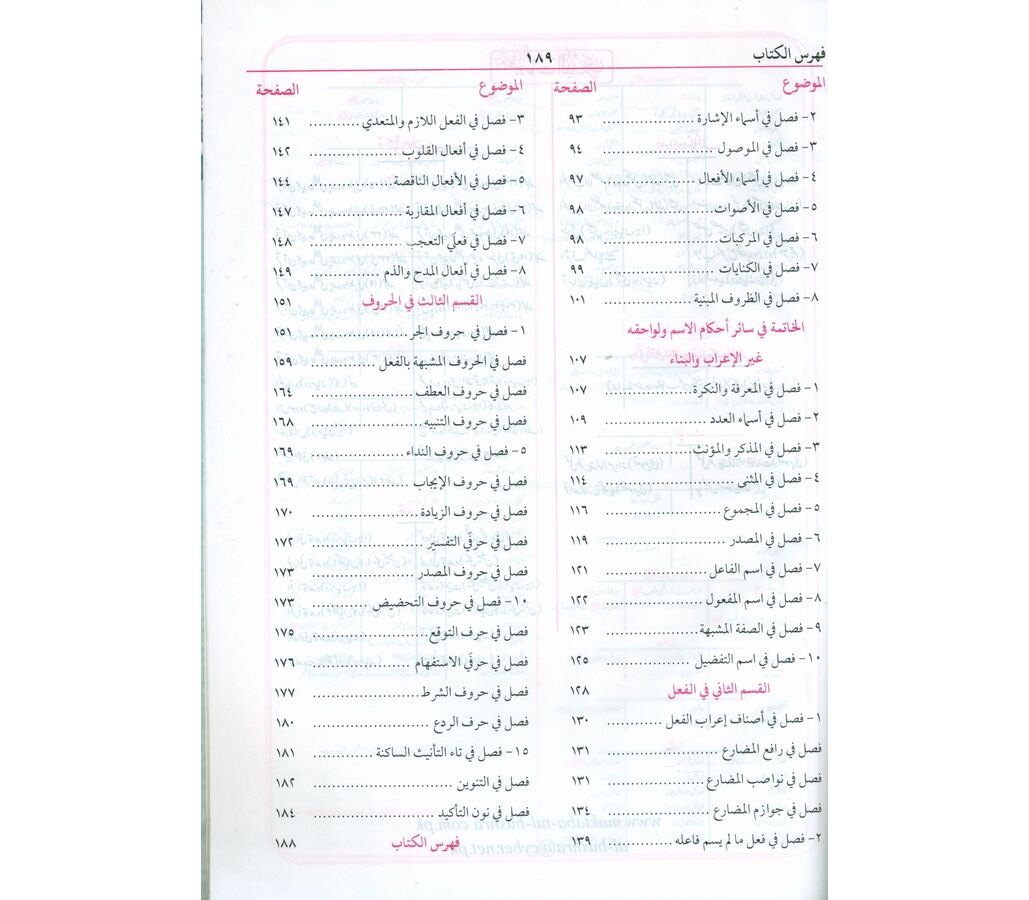 فهرس الكتاب ١٨٩
الموضوع الصفحة
٢- فصل في أسماء الإشارة ..................... ٩٣
٣- فصل في الموصول ......................... ٩٤
٤- فصل في أسماء الأفعال .................... ٩٧
٥- فصل في الأصوات......................... ٩٨
٦- فصل في المركبات......................... ٩٨
٧- فصل في الكنايات ........................ ٩٩
٨- فصل في الظروف المبنية ................... ١٠١
الخاتمة في سائر أحكام الاسم ولواحقه
غير الإعراب والبناء ١٠٧
١- فصل في المعرفة والنكرة................... ١٠٧
٢- فصل في أسماء العدد ..................... ١٠٩
٣- فصل في المذكر والمؤنث................... ١١٣
٤- فصل في المثنى ............................ ١١٤
٥- فصل في المجموع ......................... ١١٦
٦- فصل في المصدر .......................... ١١٩
٧- فصل في اسم الفاعل ...................... ١٢١
٨- فصل في اسم المفعول ..................... ١٢٢
٩- فصل في الصفة المشبهة.................... ١٢٣
١٠- فصل في اسم التفضيل .................. ١٢٥
القسم الثاني في الفعل ١٢٨
١- فصل في أصناف إعراب الفعل ............ ١٣٠
فصل في رافع المضارع ........................ ١٣١
فصل في نواصب المضارع..................... ١٣١
فصل في جوازم المضارع ...................... ١٣٤
٢- فصل في فعل ما لم يسم فاعله .............. ١٣٩
الموضوع الصفحة
٣- فصل في الفعل اللازم والمتعدي ........... ١٤١
٤- فصل في أفعال القلوب ................... ١٤٢
٥- فصل في الأفعال الناقصة.................. ١٤٤
٦- فصل في أفعال المقاربة .................... ١٤٧
٧- فصل في فعلَي التعجب .................... ١٤٨
٨- فصل في أفعال المدح والذم ............... ١٤٩
القسم الثالث في الحروف ١٥١
١- فصل في حروف الجر...................... ١٥١
فصل في الحروف المشبهة بالفعل .............. ١٥٩
فصل في حروف العطف ...................... ١٦٤
فصل في حروف التنبيه........................ ١٦٨
٥- فصل في حروف النداء .................... ١٦٩
فصل في حروف الإيجاب ..................... ١٦٩
فصل في حروف الزيادة........................ ١٧٠
فصل في حرفَي التفسير ....................... ١٧٢
فصل في حروف المصدر ...................... ١٧٣
١٠- فصل في حروف التحضيض ............ ١٧٣
فصل في حرف التوقع......................... ١٧٥
فصل في حرفَي الاستفهام .................... ١٧٦
فصل في حروف الشرط....................... ١٧٧
فصل في حرف الردع ......................... ١٨٠
١٥- فصل في تاء التأنيث الساكنة ............ ١٨١
فصل في التنوين .............................. ١٨٢
فصل في نون التأكيد .......................... ١٨٤
فهرس الكتاب ١٨٨